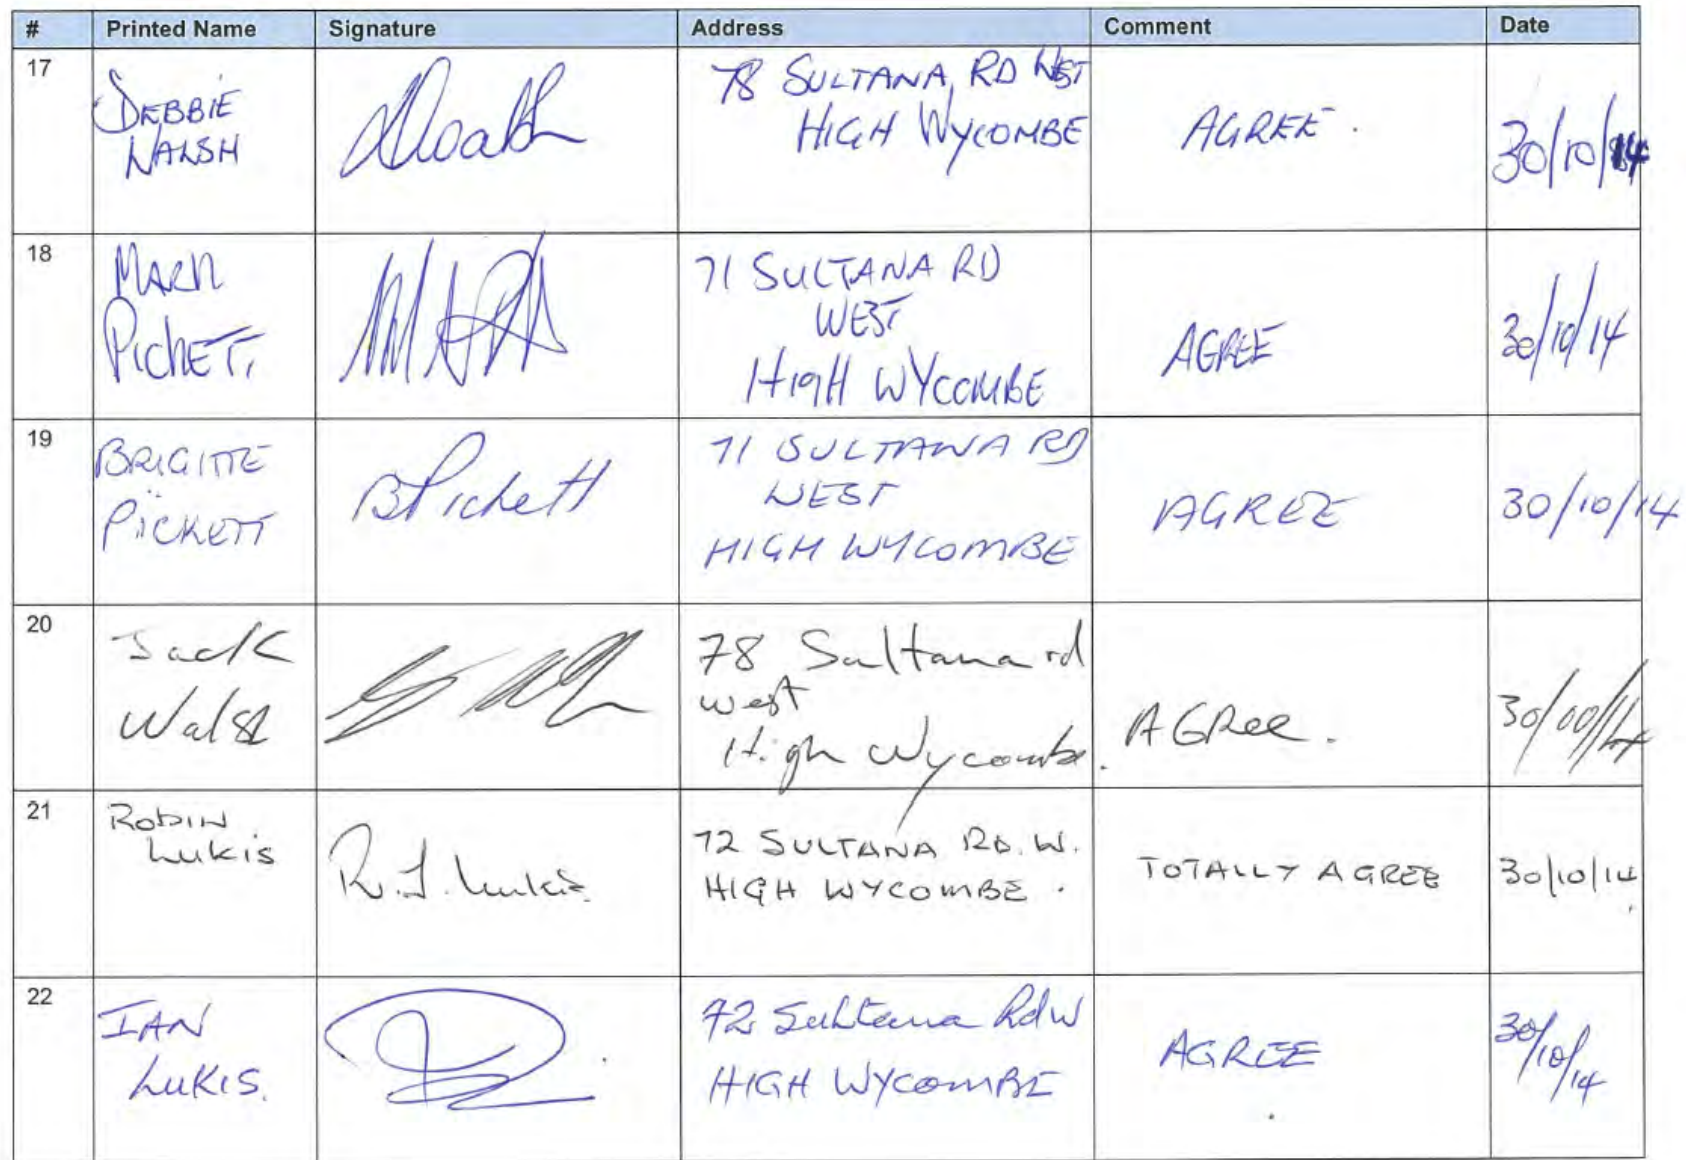 # Printed Name Signature Address Comment Date
17 DEBBIE WALSH 78 SULTANA RD WEST HIGH WYCOMBE AGREE. 30/10/14
18 MARK PICKETT 71 SULTANA RD WEST HIGH WYCOMBE AGREE 30/10/14
19 BRIGITTE PICKETT BPickett 71 SULTANA RD WEST HIGH WYCOMBE AGREE 30/10/14
20 Jack Walsh 78 Sultana rd west High Wycombe. AGRee. 30/10/14
21 ROBIN LUKIS R.J. Lukis. 72 SULTANA RD. W. HIGH WYCOMBE. TOTALLY AGREE 30/10/14
22 IAN LUKIS. 72 Sultana Rd W HIGH WYCOMBE AGREE 30/10/14